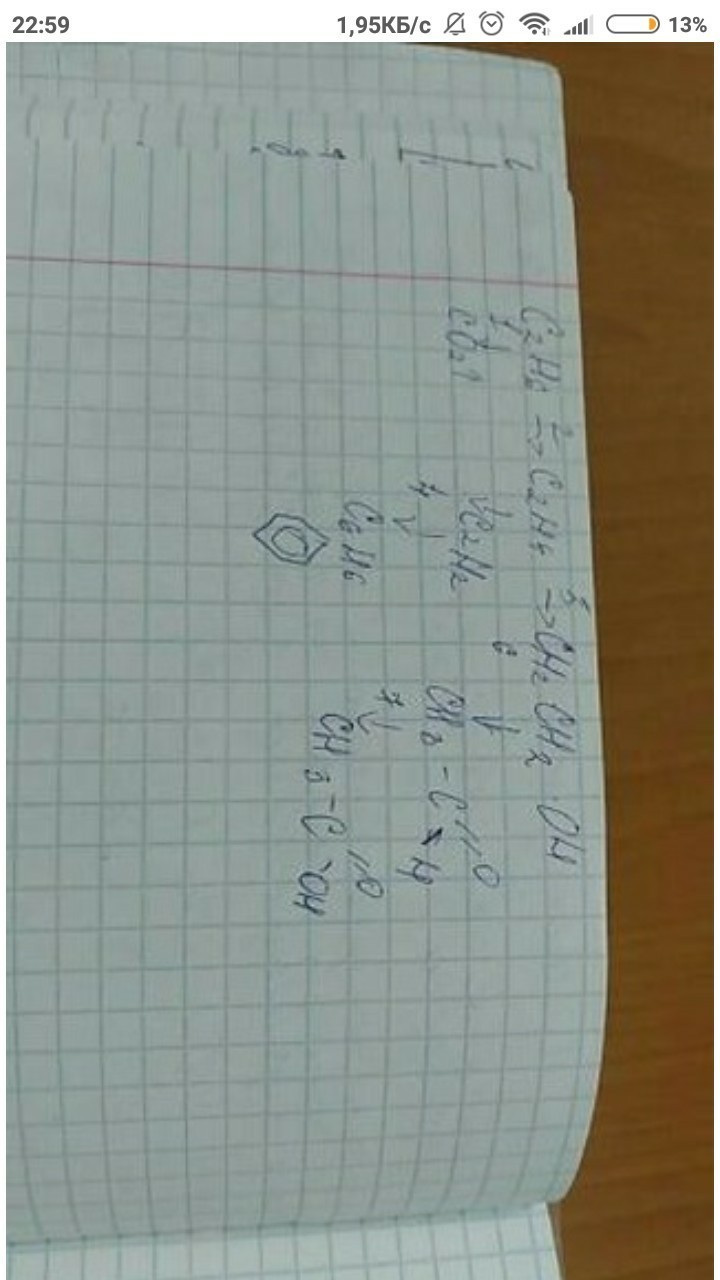 22:59 1,95КБ/с 13%
C₂H₆ →² C₂H₄ →⁵ CH₂CH₂OH
CO₂↑ C₂H₂ 6 CH₃-C=O H
C₆H₆ 7 CH₃-C=O OH